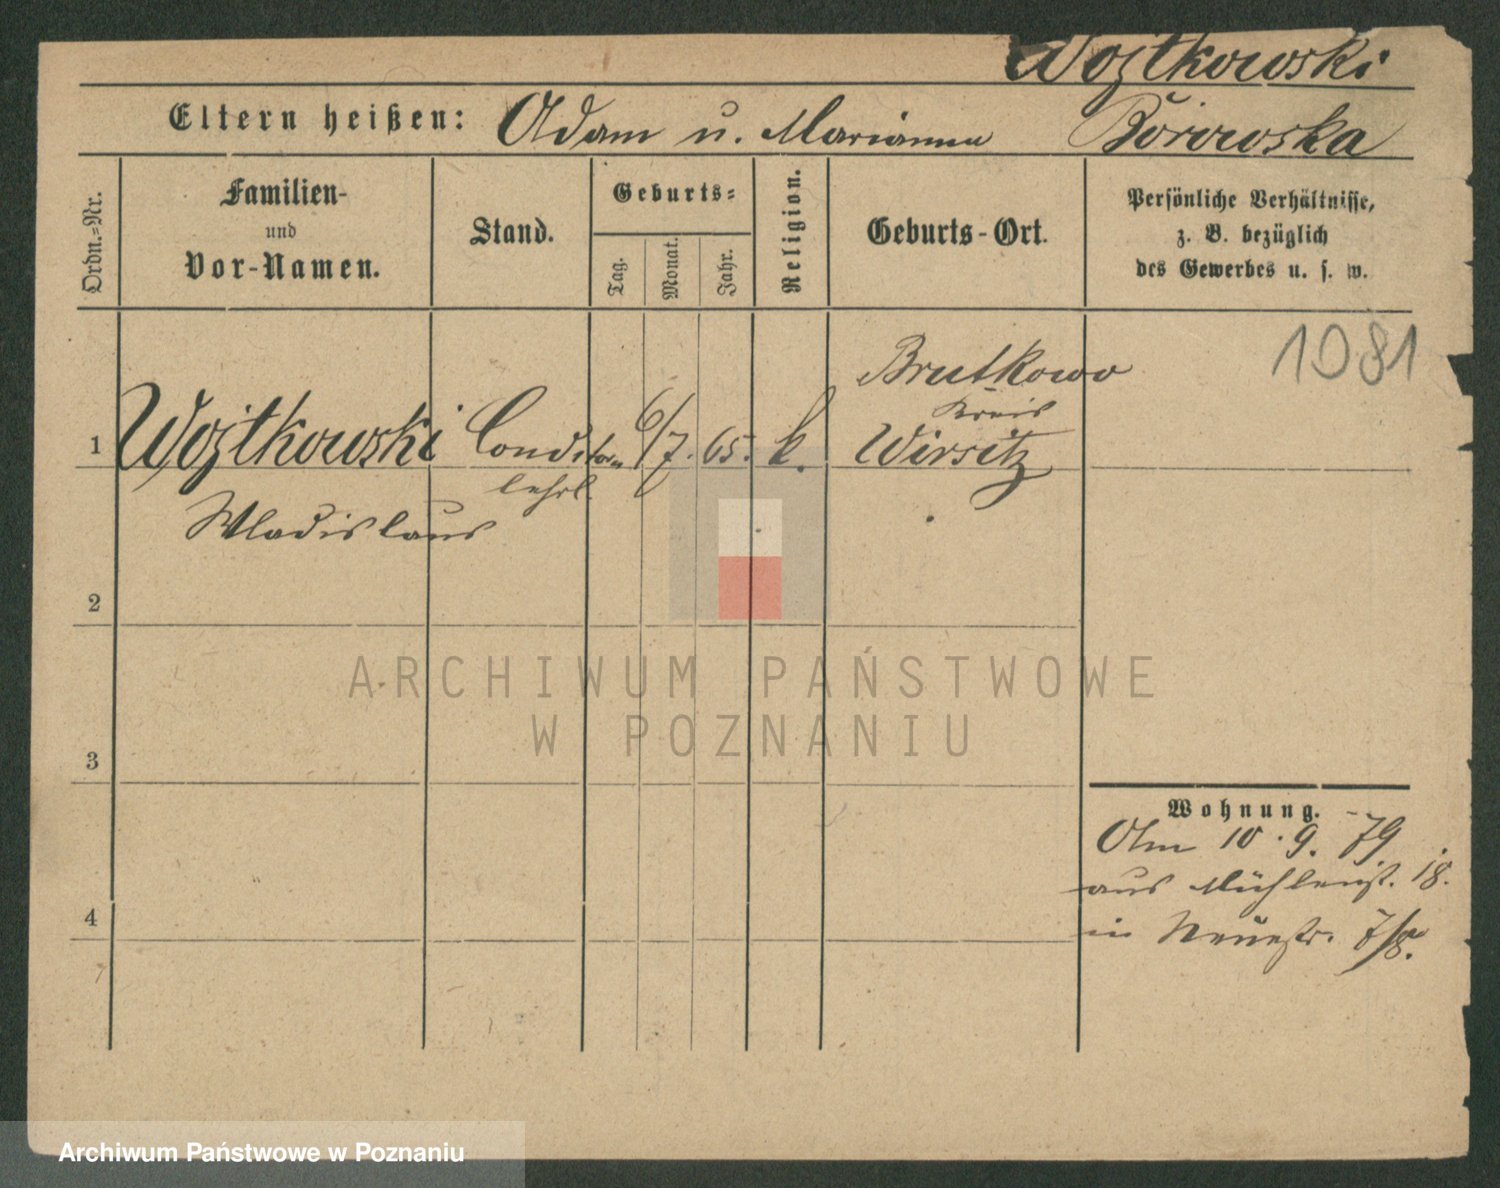 Wojtkowski
Eltern heißen: Adam u. Marianna Borowska
Ordn.-Nr.
Familien-
und
Vor-Namen.
Stand.
Geburts-
Tag.
Monat.
Jahr.
Religion.
Geburts-Ort.
Persönliche Verhältnisse,
z. B. bezüglich
des Gewerbes u. s. w.
1081
Brutkowo
Kreis
1 Wojtkowski Conditor 6/7. 65. k. Wirsitz
lehrl.
Wladislaus
2
3
4
ARCHIWUM PAŃSTWOWE
W POZNANIU
Wohnung.
10. 9. 79
aus Mühlenst. 18.
in Neuestr. 7/8.
Archiwum Państwowe w Poznaniu